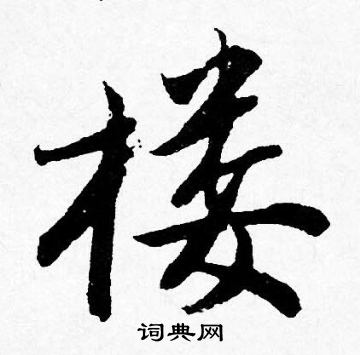 楼
词典网